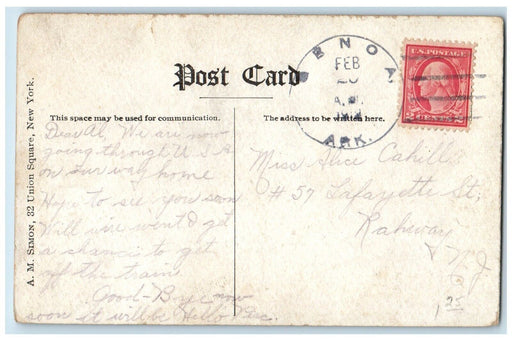 Post Card
This space may be used for communication.
The address to be written here.
A. M. SIMON, 32 Union Square, New York.
BENOA
FEB
A.M.
ARK.
U.S. POSTAGE
Dear Al, We are now
going through U S A
on our way home
Hope to see you soon
Will we won't get
a chance to get
off the train
Good-Bye now
soon it will be Hello
Miss Alice Cahill
# 57 Lafayette St;
Rahway
N J
1 25